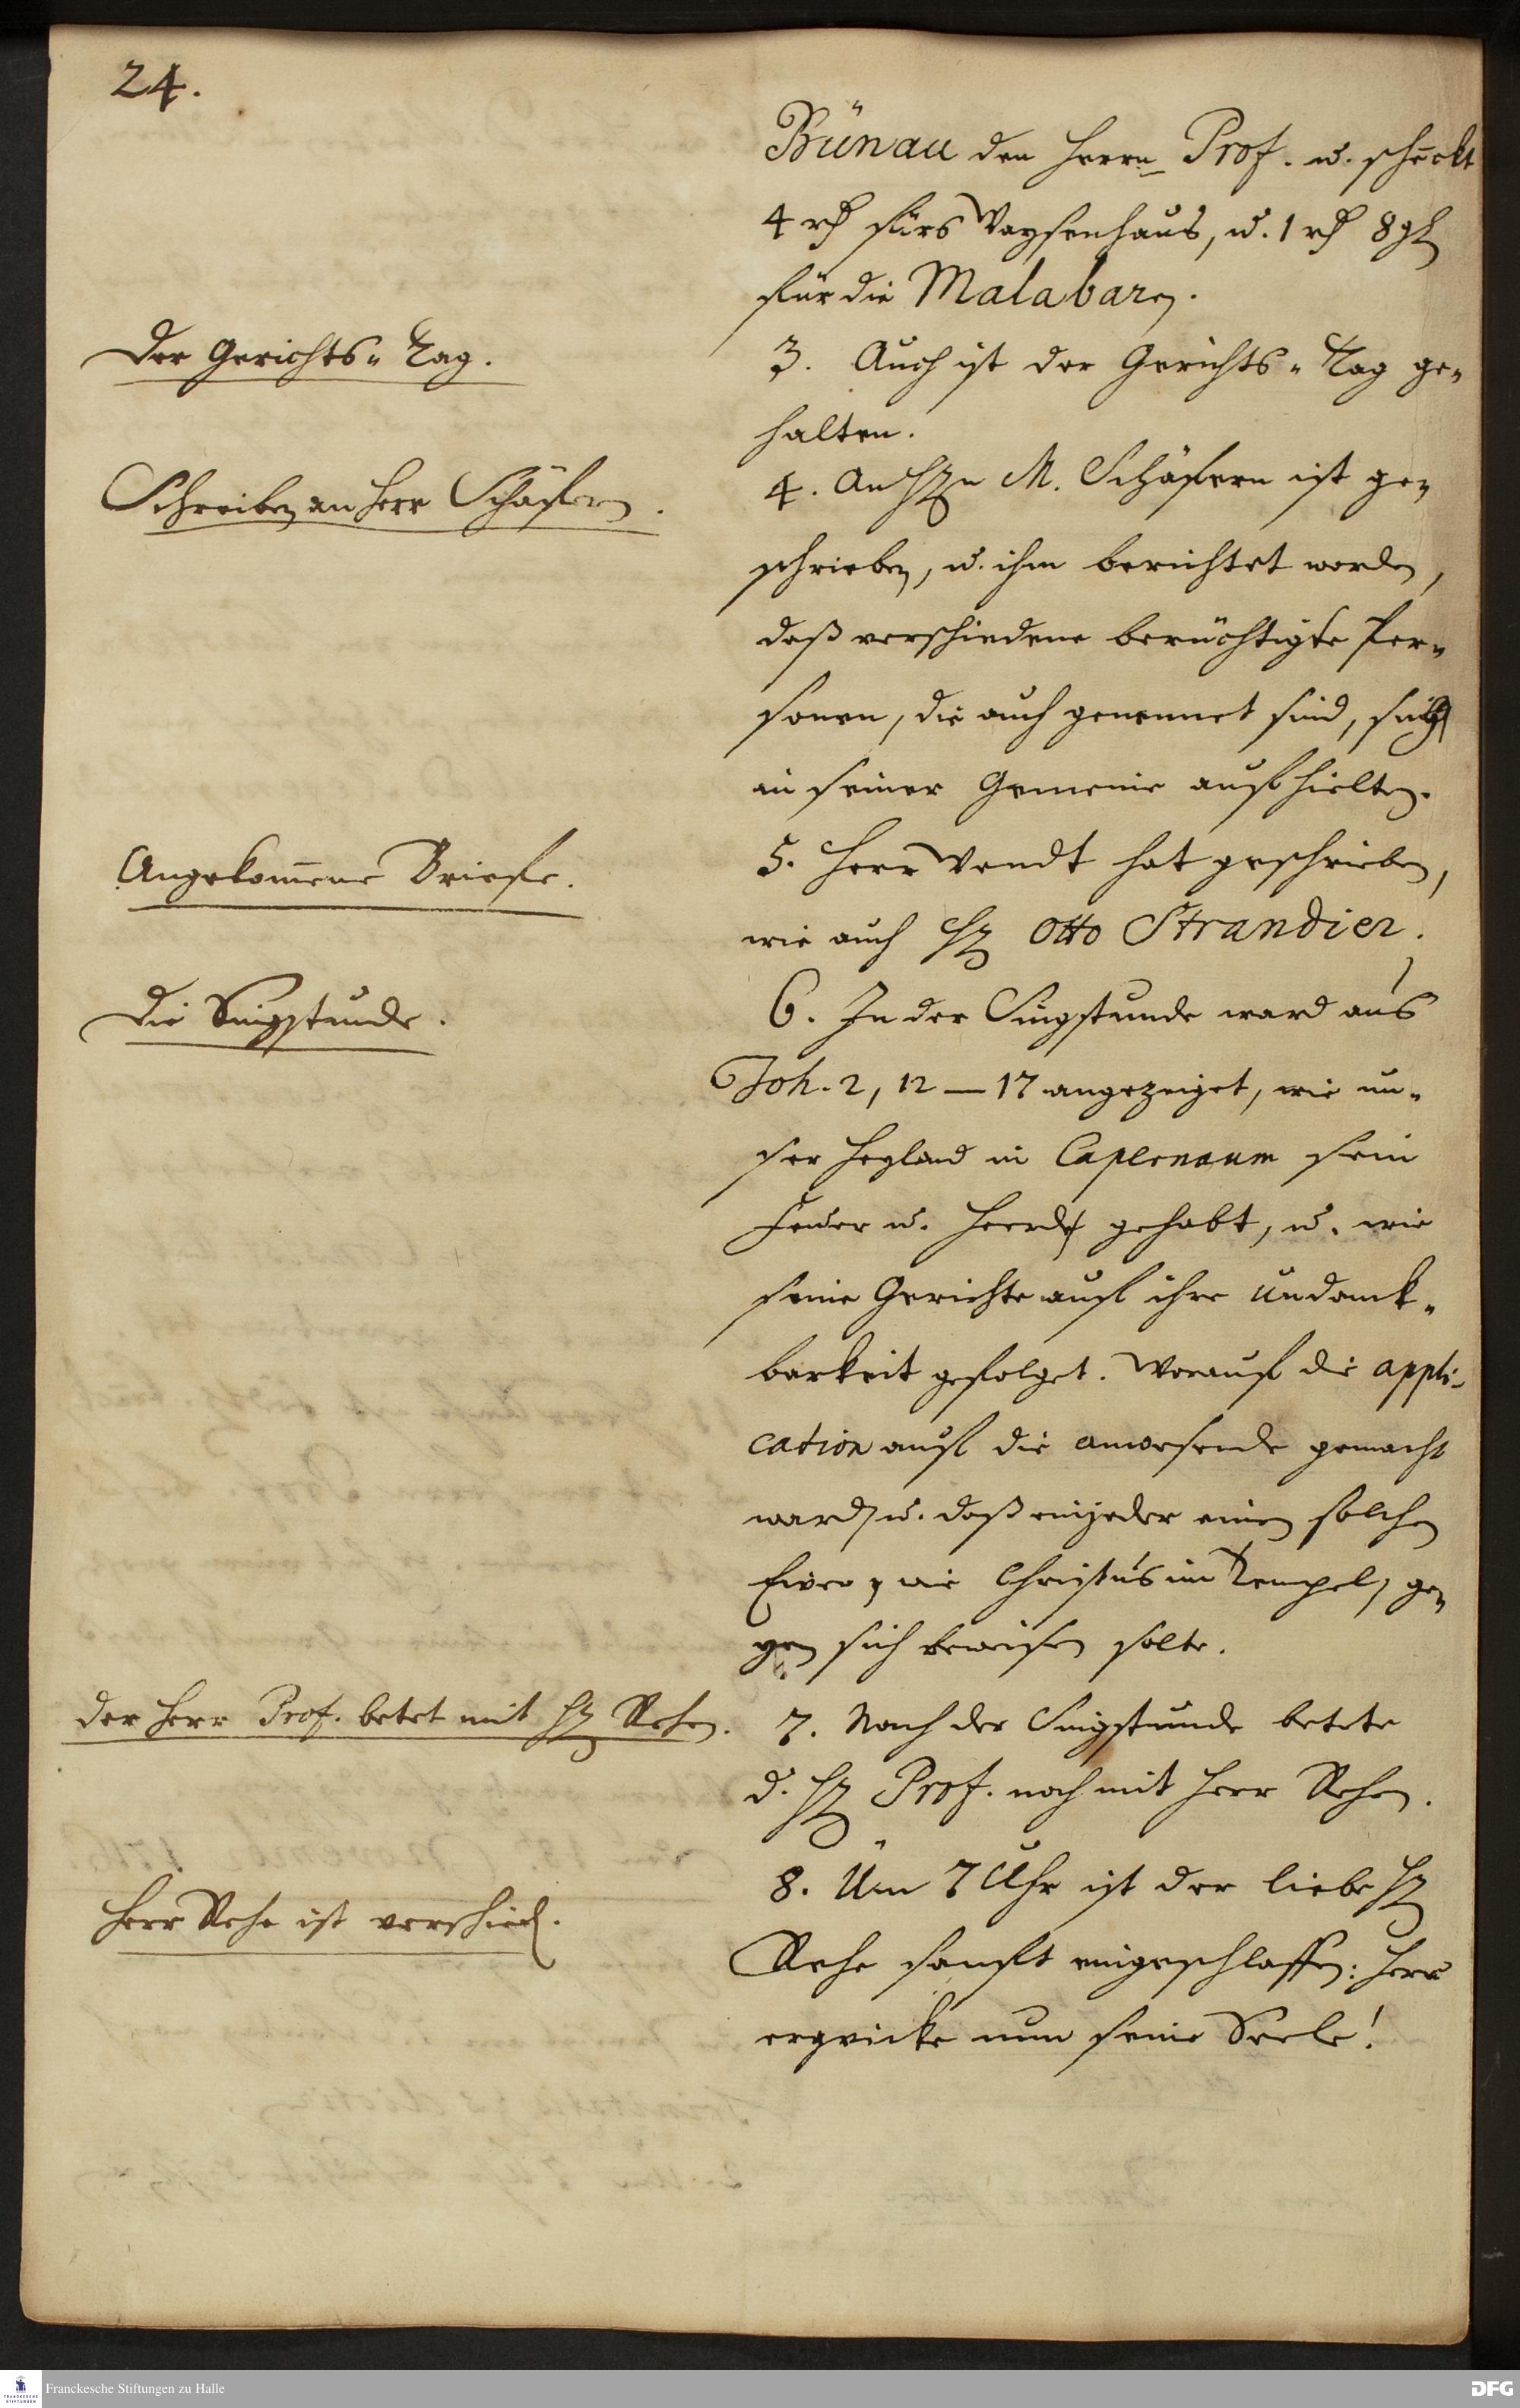 24.
Bünau den Herrn Prof. u. schenckt
4 rh fürs Waysenhaus, u. 1 rh 8 gl
für die Malabaren.
Der Gerichts-Tag.
3. Auch ist der Gerichts-Tag ge-
halten.
Schreiben an Herr Schäfern.
4. An Hrn M. Schäfern ist ge-
schrieben, u. ihm berichtet worden,
daß verschiedene berüchtigte Per-
sonen, die auch genennet sind, sich
in seiner Gemeine aufhielten.
Angekom̄ene Briefe.
5. Herr Wendt hat geschrieben,
wie auch Hr Otto Strandier.
Die Singstunde.
6. In der Singstunde ward aus
Joh. 2, 12 — 17 angezeiget, wie un-
ser Heyland in Capernaum sein
Feuer u. Heerd gehabt, u. wie
seine Gerichte auf ihre Undanck-
barkeit gefolget. Worauf die appli-
cation auf die anwesende gemacht
ward, u. daß ein jeder einen solchen
Eiver, wie Christus im Tempel, ge-
gen sich beweisen solte.
Der Herr Prof. betet mit Hr Rehen.
7. Nach der Singstunde betete
d. Hr Prof. noch mit Herr Rehen.
Herr Rehe ist verschied.
8. Um 7 Uhr ist der liebe Hr
Rehe sanft eingeschlaffen: Herr
erqvicke nun seine Seele!
Franckesche Stiftungen zu Halle
DFG